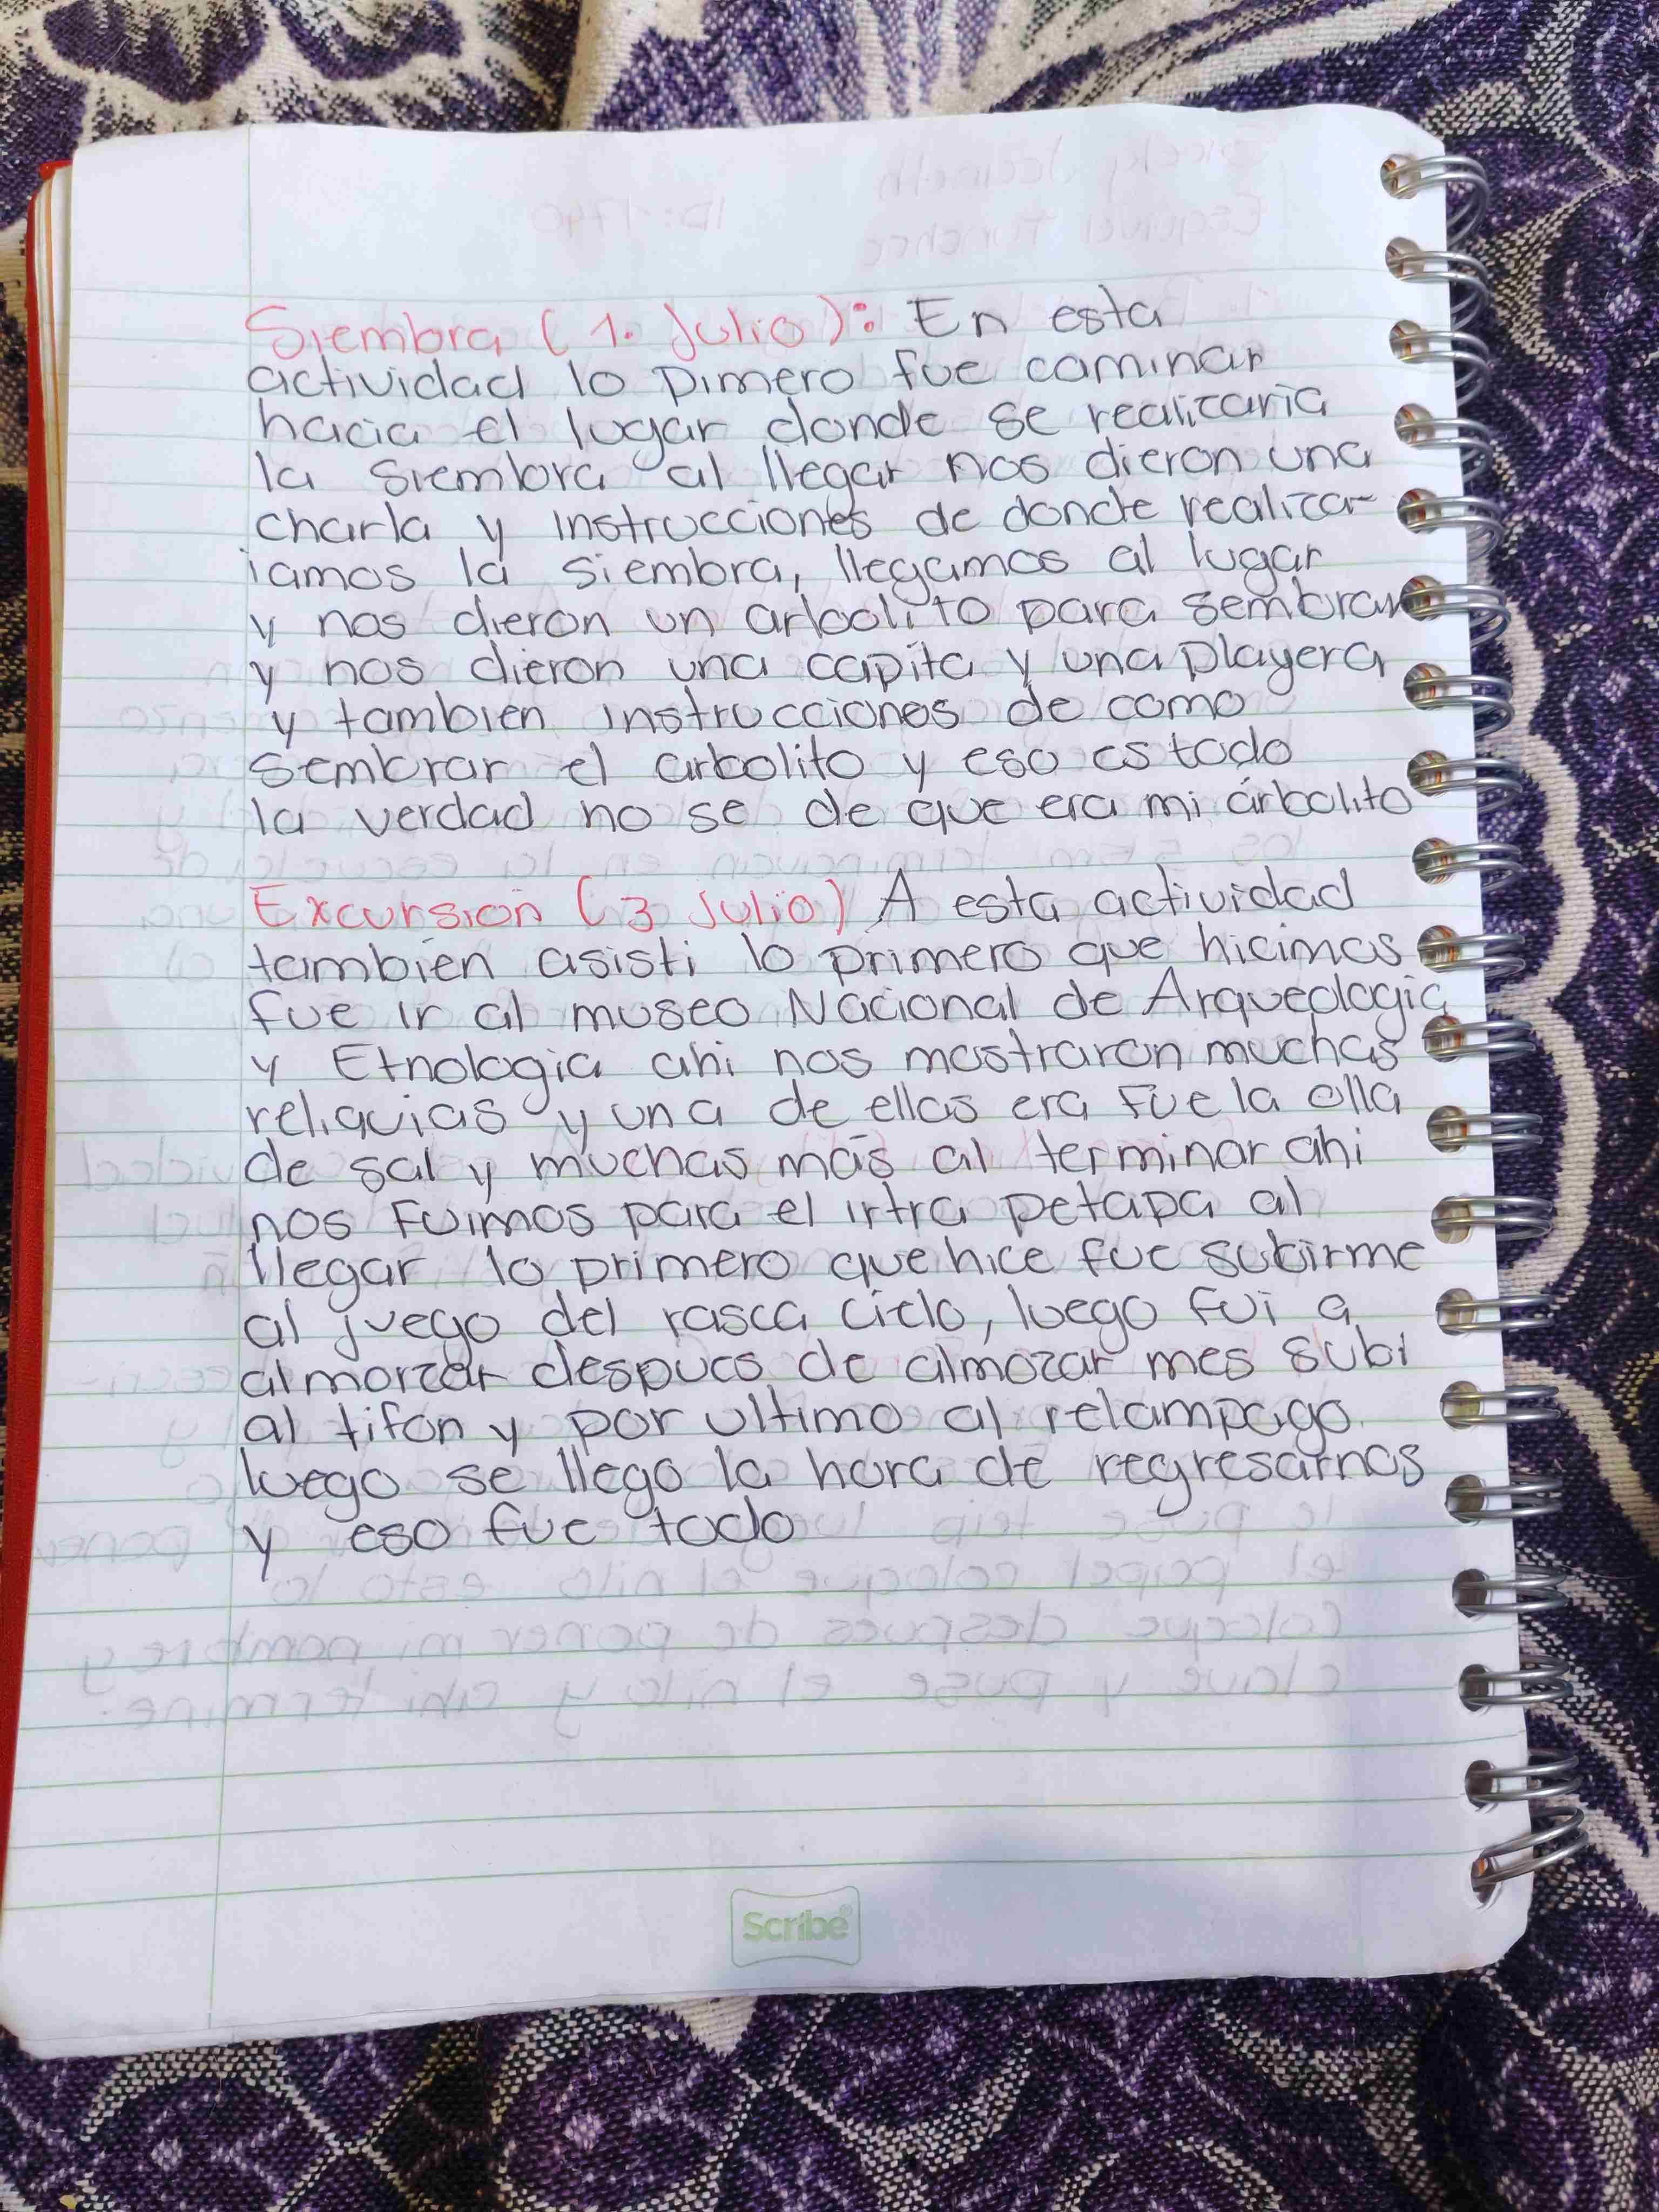 Siembra (1. Julio): En esta
actividad lo pimero fue caminar
hacia el lugar donde se realizaria
la siembra al llegar nos dieron una
charla y instrucciones de donde realizar-
iamos la siembra, llegamos al lugar
y nos dieron un arbolito para sembrar
y nos dieron una capita y una playera
y tambien instrucciones de como
sembrar el arbolito y eso es todo
la verdad no se de que era mi árbolito
Excursión (3 Julio) A esta actividad
también asisti lo primero que hicimos
fue ir al museo Nacional de Arqueologia
y Etnologia ahi nos mostraron muchas
reliquias y una de ellas era fue la olla
de sal y muchas más al terminar ahi
nos fuimos para el irtra petapa al
llegar lo primero que hice fue subirme
al juego del rasca cielo, luego fui a
almorzar despues de almozar mes subi
al tifón y por ultimo al relampago.
luego se llego la hora de regresarnos
y eso fue todo
Scribe®